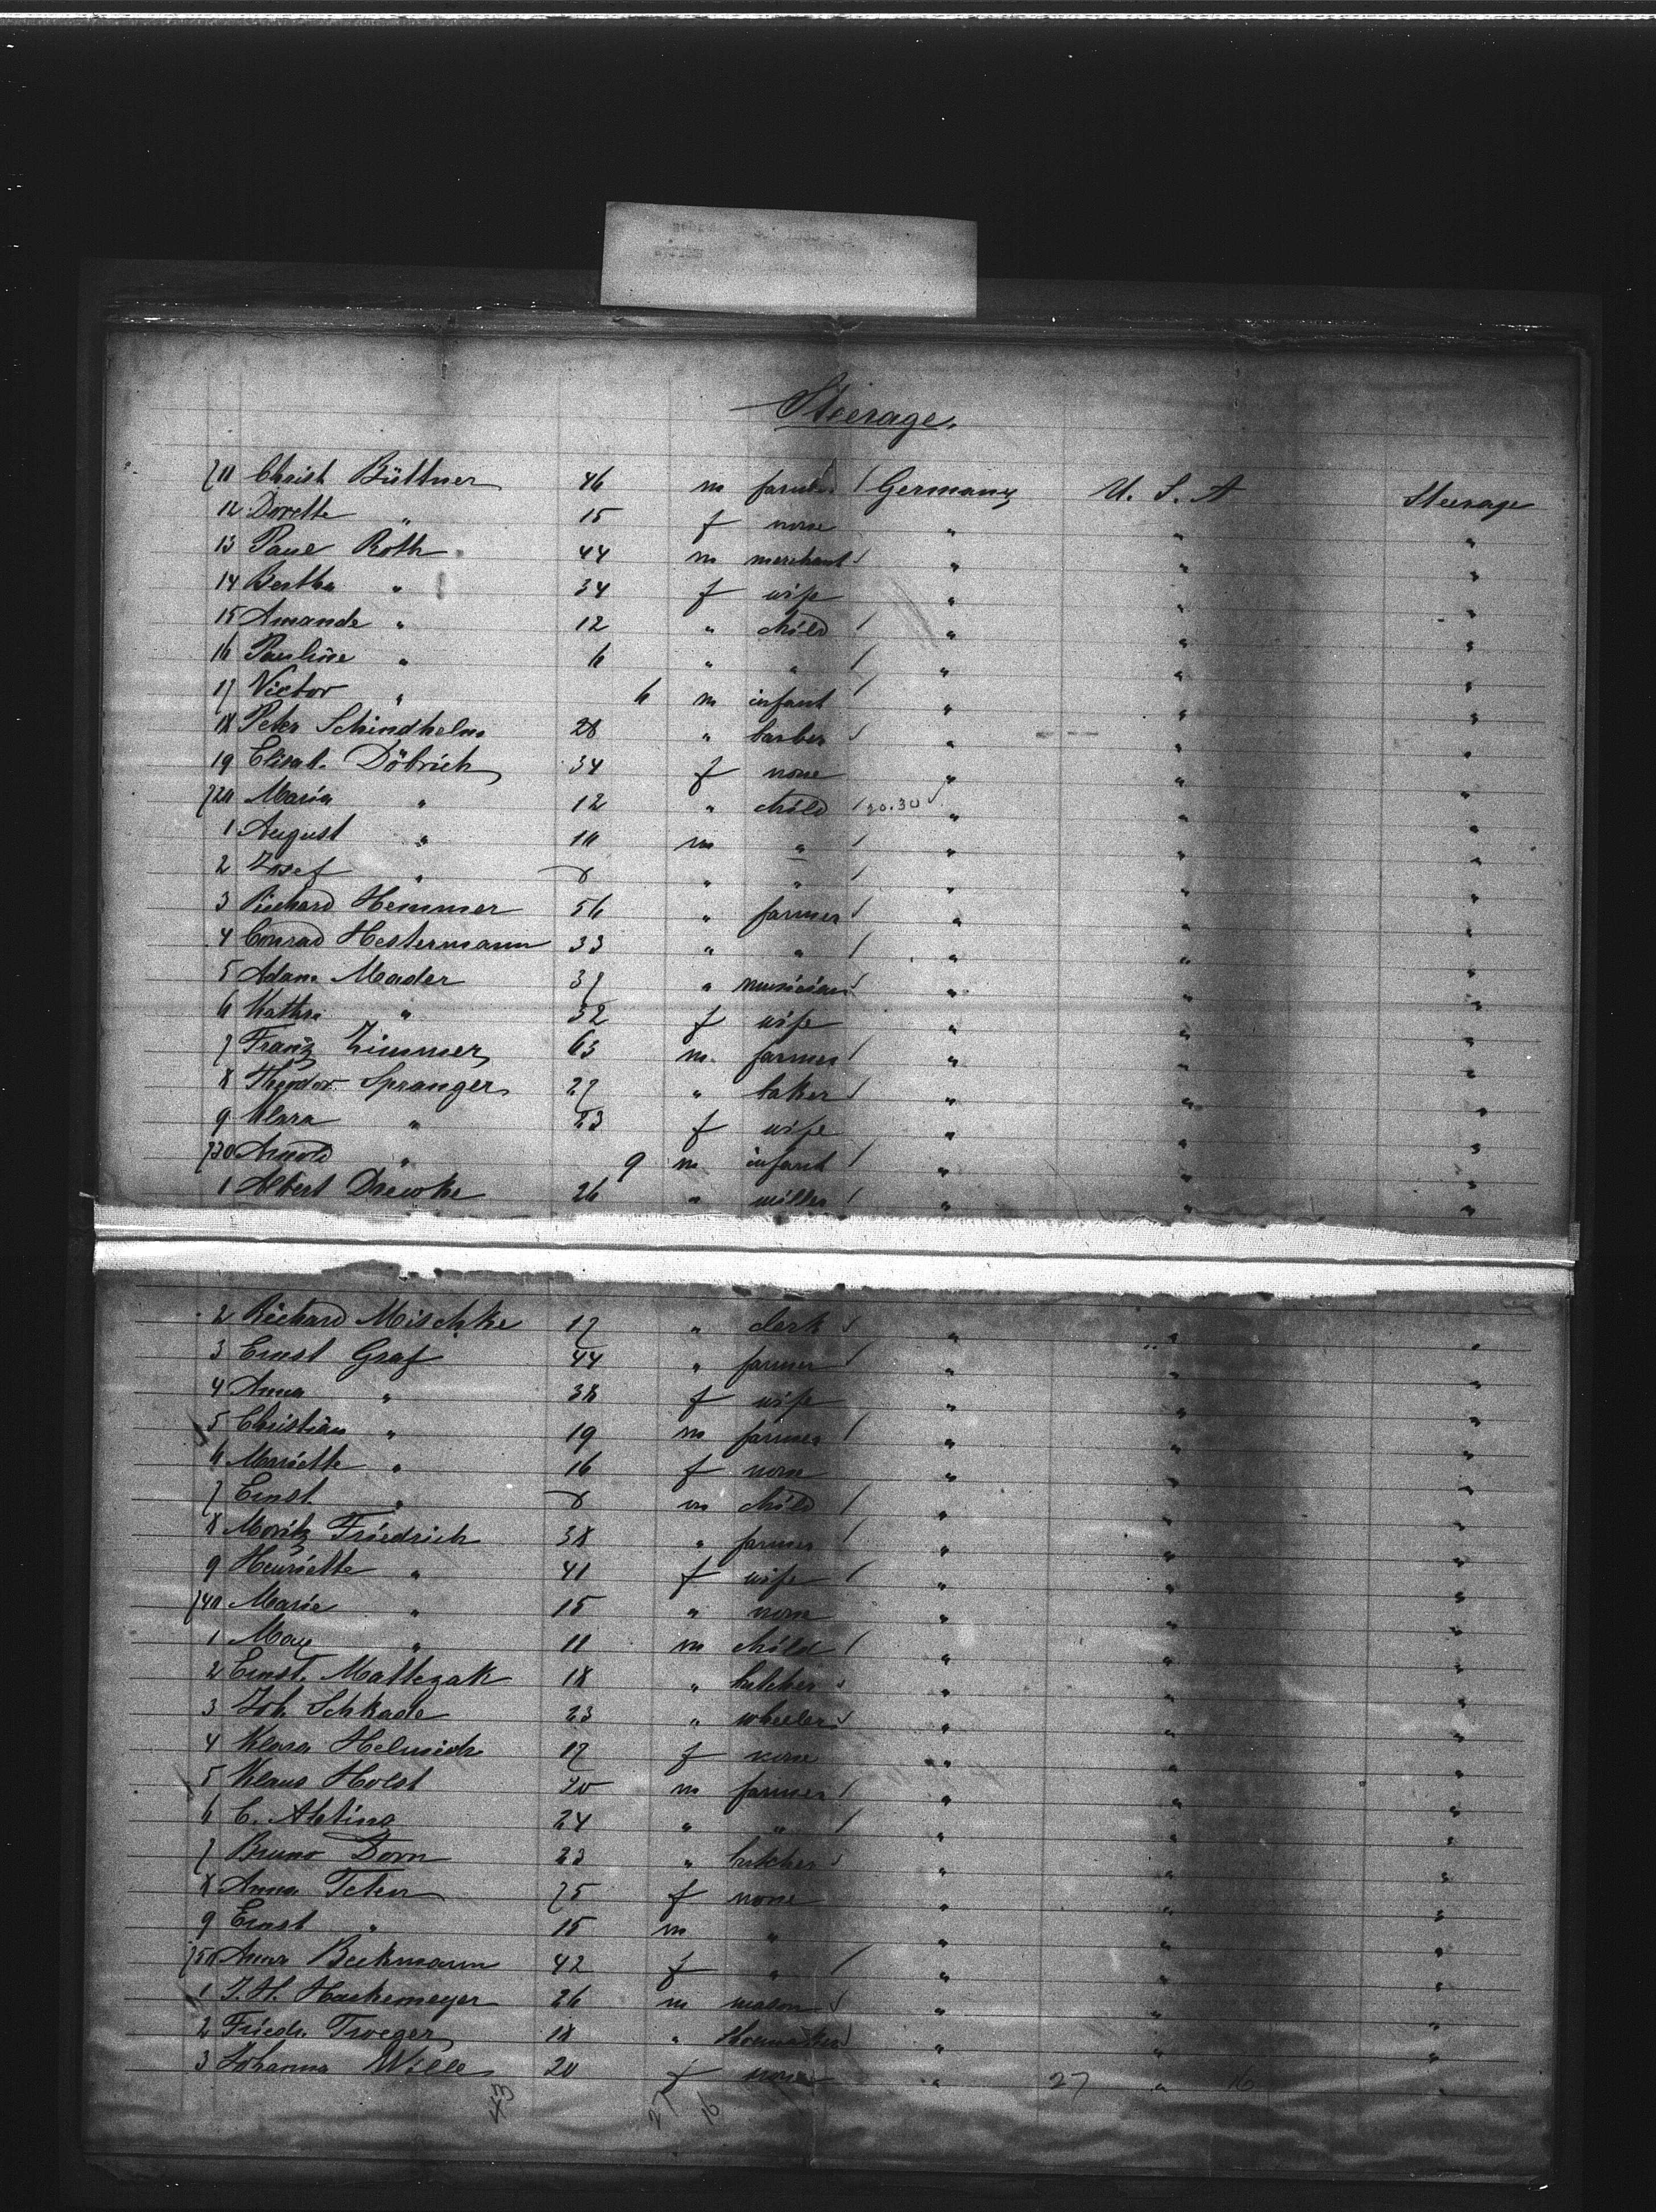 Steerage.
711 Christ Büttner 46 m farmer / Germany U. S. A Steerage
12 Dorette " 15 f none " " "
13 Paul Roth 44 m merchant " " "
14 Bertha " 34 f wife " " "
15 Amanda " 12 " child / " " "
16 Pauline " 6 " " / " " "
17 Victor " 6 m infant / " " "
18 Peter Schindhelm 28 " barber " " "
19 Elisab. Döbrich 34 f none " " "
720 Maria " 12 " child / " " "
1 August " 10 m " / " " "
2 Josef " 8 " " / " " "
3 Richard Hemmer 56 " farmer " " "
4 Conrad Hestermann 33 " " / " " "
5 Adam Mader 37 " musician " " "
6 Kathr. " 32 f wife " " "
7 Franz Zimmer 63 m farmer / " " "
8 Theodor Spranger 27 " baker " " "
9 Klara " 23 f wife " " "
730 Arnold " 9 m infant / " " "
1 Albert Drewke 26 " miller / " " "
2 Richard Mischke 17 " clerk " " "
3 Ernst Graf 44 " farmer / " " "
4 Anna " 38 f wife " " "
5 Christian " 19 m farmer / " " "
6 Mariette " 16 f none " " "
7 Ernst " 8 m child / " " "
8 Moritz Friedrich 38 " farmer / " " "
9 Henriette " 41 f wife / " " "
740 Marie " 15 " none " " "
1 Max " 11 m child / " " "
2 Ernst Mattczak 18 " butcher " " "
3 Joh. Schkade 23 " wheeler " " "
4 Klara Helmich 17 f none " " "
5 Klaus Holst 40 m farmer / " " "
6 C. 24 " " / " " "
7 Bruno Dorn 23 " butcher " " "
8 Anna 75 f none " " "
9 Ernst " 15 m " " " "
750 Anna Beckmann 42 f " / " " "
1 J. H. Hackemeyer 26 m mason " " "
2 Friedr. Troeger 18 " Shoemaker " " "
3 Johanna Wille 20 f none " 27 " 16
43 27 16